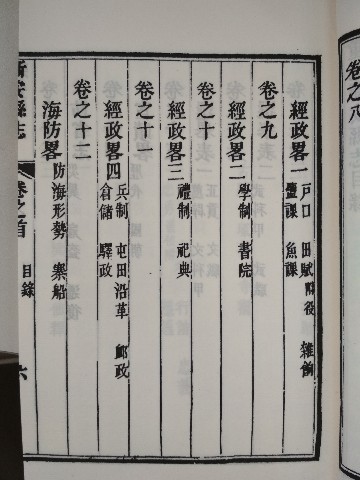 卷之八
經政畧一 戶口 田賦附役 雜餉
鹽課 魚課
卷之九
經政畧二 學制 書院
卷之十
經政畧三 禮制 祀典
卷之十一
經政畧四 兵制 屯田沿革 郵政
倉儲 驛政
卷之十二
海防畧 防海形勢 寨船
新安縣志 卷之首 目錄 六